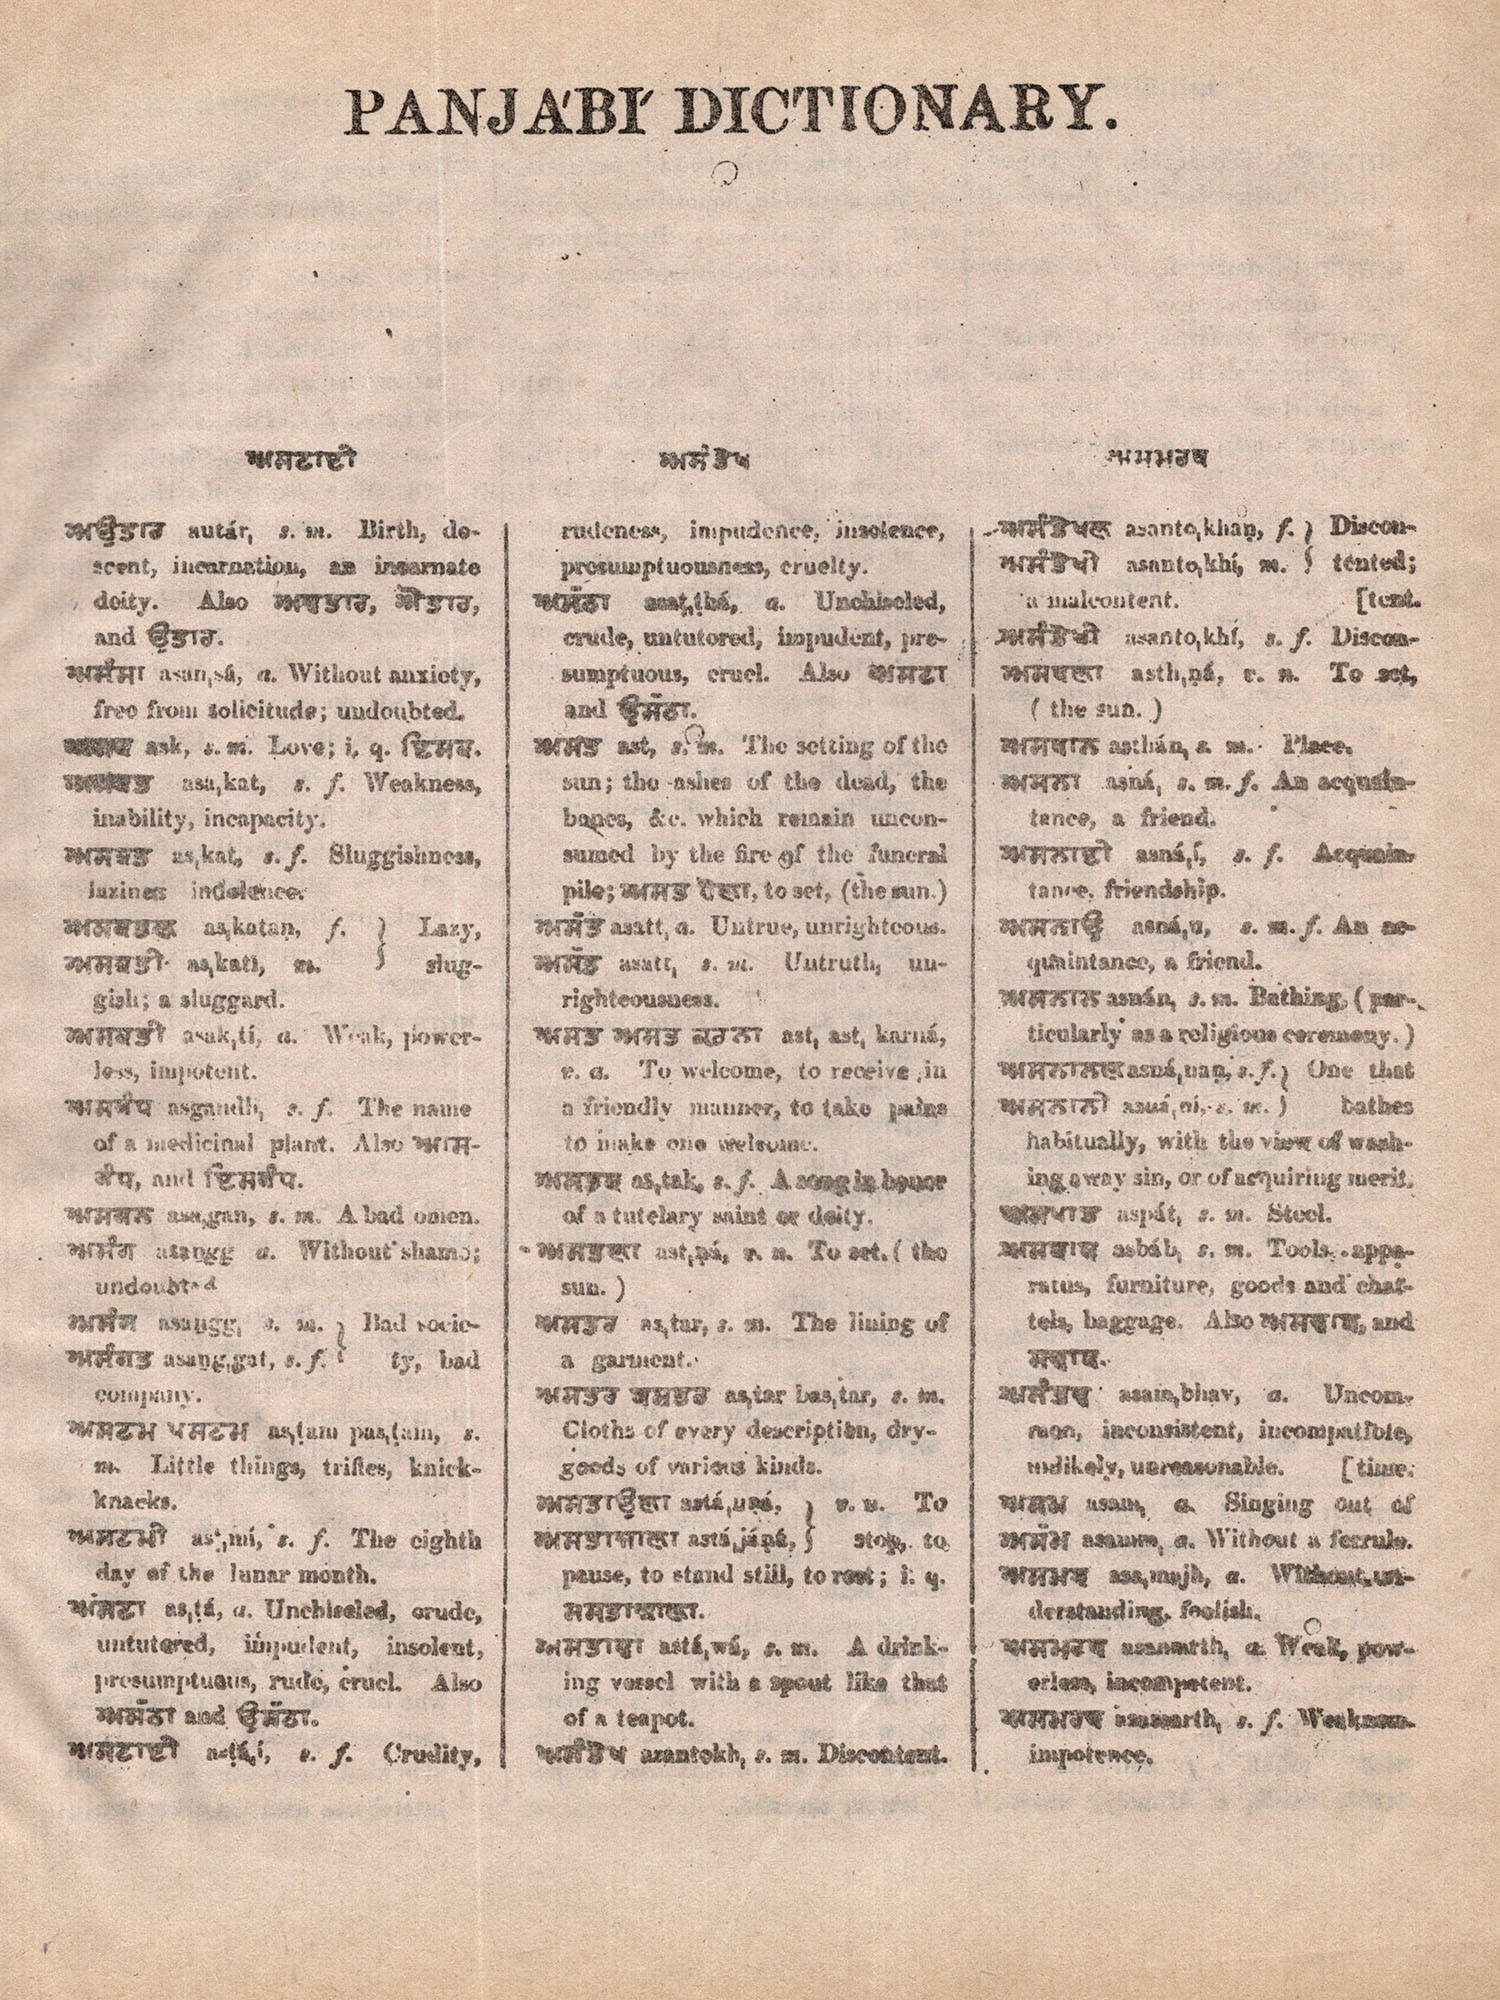 PANJÁBÍ DICTIONARY.
ਅਸਟਾਈ
ਅਉਤਾਰ autár, s. m. Birth, de-
scent, incarnation, an incarnate
deity. Also ਅਵਤਾਰ, ਔਤਾਰ,
and ਉਤਾਰ.
ਅਸੰਸਾ asaṉ,sá, a. Without anxiety,
free from solicitude; undoubted.
ask, s. m. Love; i. q. ਇਸਕ.
ਅਸਕਤ asa,kat, s. f. Weakness,
inability, incapacity.
ਅਸਕਤ as,kat, s. f. Sluggishness,
laziness indolence.
ਅਸਕਤਣ as,kataṇ, f. } Lazy,
ਅਸਕਤੀ as,katí, m. } slug-
gish; a sluggard.
ਅਸਕਤੀ asak,tí, a. Weak, power-
less, impotent.
ਅਸਗੰਧ asgandh, s. f. The name
of a medicinal plant. Also ਆਸ-
ਗੰਧ, and ਇਸਗੰਧ.
ਅਸਗਨ asa,gan, s. m. A bad omen.
ਅਸੰਗ asaṉgg a. Without shame;
undoubted
ਅਸੰਗ asaṉgg, s. m. } Bad socie-
ਅਸੰਗਤ asaṉg,gat, s. f. } ty, bad
company.
ਅਸਟਮ ਪਸਟਮ as,ṭam pas,ṭam, s.
m. Little things, trifles, knick-
knacks.
ਅਸਟਮੀ asṭ,mí, s. f. The eighth
day of the lunar month.
ਅਸਟਾ as,ṭá, a. Unchiseled, crude,
untutored, impudent, insolent,
presumptuous, rude, cruel. Also
ਅਸੱਠਾ and ਉਸੱਠਾ.
ਅਸਟਾਈ asṭá,í, s. f. Crudity,
ਅਸੰਤੋਖ
rudeness, impudence, insolence,
presumptuousness, cruelty.
ਅਸੱਠਾ asaṭ,ṭhá, a. Unchiseled,
crude, untutored, impudent, pre-
sumptuous, cruel. Also ਅਸਟਾ
and ਉਸੱਠਾ.
ਅਸਤ ast, s. m. The setting of the
sun; the ashes of the dead, the
bones, &c. which remain uncon-
sumed by the fire of the funeral
pile; ਅਸਤ ਹੋਣਾ, to set, (the sun.)
ਅਸੱਤ asatt, a. Untrue, unrighteous.
ਅਸੱਤ asatt, s. m. Untruth, un-
righteousness.
ਅਸਤ ਅਸਤ ਕਰਨਾ ast, ast, karná,
v. a. To welcome, to receive in
a friendly manner, to take pains
to make one welcome.
ਅਸਤਕ as,tak, s. f. A song in honor
of a tutelary saint or deity.
ਅਸਤਣਾ ast,ṇá, v. n. To set. ( the
sun. )
ਅਸਤਰ as,tar, s. m. The lining of
a garment.
ਅਸਤਰ ਬਸਤਰ as,tar bas,tar, s. m.
Cloths of every description, dry-
goods of various kinds.
ਅਸਤਾਉਣਾ astá,uṇá, } v. n. To
ਅਸਤਾਜਾਣਾ astá,jáṇá, } stop, to
pause, to stand still, to rest; i. q.
ਸਸਤਾਜਾਣਾ.
ਅਸਤਾਵਾ astá,wá, s. m. A drink-
ing vessel with a spout like that
of a teapot.
ਅਸੰਤੋਖ asantokh, s. m. Discontent.
ਅਸਮਰਥ
ਅਸੰਤੋਖਣ asanto,khaṇ, f. } Discon-
ਅਸੰਤੋਖੀ asanto,khí, m. } tented;
a malcontent. [tent.
ਅਸੰਤੋਖੀ asanto,khí, s. f. Discon-
ਅਸਥਣਾ asth,ṇá, v. n. To set,
( the sun. )
ਅਸਥਾਨ asthán, s. m. Place.
ਅਸਨਾ asná, s. m. f. An acquain-
tance, a friend.
ਅਸਨਾਈ asná,í, s. f. Acquain-
tance, friendship.
ਅਸਨਾਉ asná,u, s. m. f. An ac-
quaintance, a friend.
ਅਸਨਾਨ asnán, s. m. Bathing, ( par-
ticularly as a religious ceremony. )
ਅਸਨਾਨਣ asná,naṇ, s. f. } One that
ਅਸਨਾਨੀ asná,ní, s. m. } bathes
habitually, with the view of wash-
ing away sin, or of acquiring merit.
ਅਸਪਾਤ aspát, s. m. Steel.
ਅਸਬਾਬ asbáb, s. m. Tools, appa-
ratus, furniture, goods and chat-
tels, baggage. Also ਅਸਵਾਬ, and
ਸਵਾਬ.
ਅਸੰਭਵ asam,bhav, a. Uncom-
mon, inconsistent, incompatible,
unlikely, unreasonable. [time.
ਅਸਮ asam, a. Singing out of
ਅਸੰਮ asamm, a. Without a ferrule.
ਅਸਮਝ asa,majh, a. Without un-
derstanding, foolish.
ਅਸਮਰਥ asamarth, a. Weak, pow-
erless, incompetent.
ਅਸਮਰਥ asamarth, s. f. Weakness,
impotence.